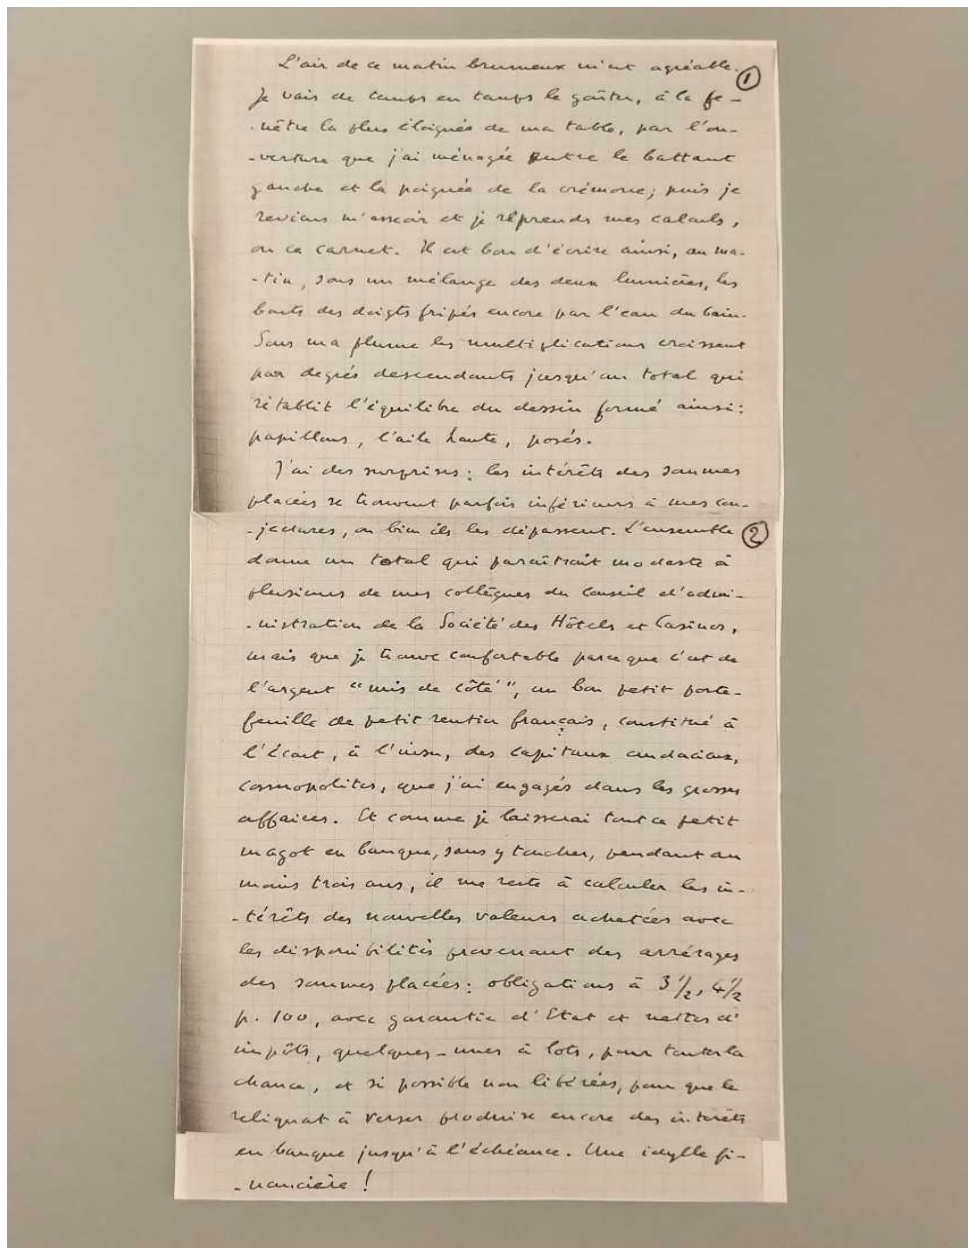 L'air de ce matin brumeux m'est agréable. ①
Je vais de temps en temps le goûter, à la fe-
-nêtre la plus éloignée de ma table, par l'ou-
-verture que j'ai ménagée entre le battant
gauche et la poignée de la crémone; puis je
reviens m'asseoir et je reprends mes calculs,
ou ce carnet. Il est bon d'écrire ainsi, au ma-
-tin, sous un mélange des deux lumières, les
bouts des doigts fripés encore par l'eau du bain.
Sous ma plume les multiplications croissent
par degrés descendants jusqu'au total qui
rétablit l'équilibre du dessin formé ainsi:
papillons, l'aile haute, posés.
J'ai des surprises: les intérêts des sommes
placées se trouvent parfois inférieurs à mes con-
-jectures, ou bien ils les dépassent. L'ensemble ②
donne un total qui paraîtrait modeste à
plusieurs de mes collègues du Conseil d'admi-
-nistration de la Société des Hôtels et Casinos,
mais que je trouve confortable parce que c'est de
l'argent "mis de côté", un bon petit porte-
feuille de petit rentier français, constitué à
l'écart, à l'insu, des capitaux audacieux,
cosmopolites, que j'ai engagés dans les grosses
affaires. Et comme je laisserai tout ce petit
magot en banque, sans y toucher, pendant au
moins trois ans, il me reste à calculer les in-
-térêts des nouvelles valeurs achetées avec
les disponibilités provenant des arrérages
des sommes placées: obligations à 3 1/2, 4 1/2
p. 100, avec garantie d'Etat et nettes d'
impôts, quelques-unes à lots, pour tenter la
chance, et si possible non libérées, pour que le
reliquat à verser produise encore des intérêts
en banque jusqu'à l'échéance. Une idylle fi-
-nancière!